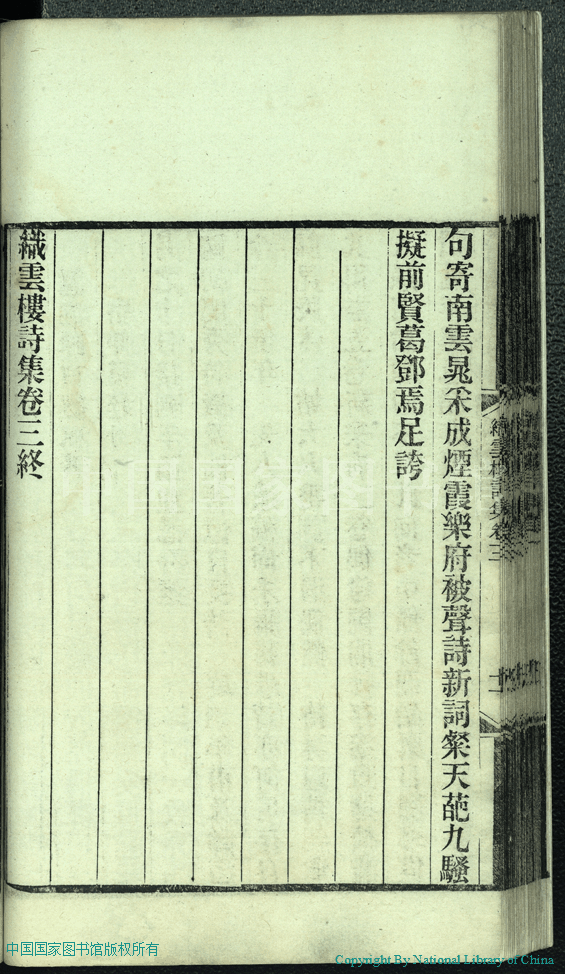 句寄南雲晁采成煙霞樂府被聲詩新詞粲天葩九騷
擬前賢葛鄧焉足誇
織雲樓詩集卷三終
織雲樓詩集卷三
中国国家图书馆版权所有
Copyright By National Library of China